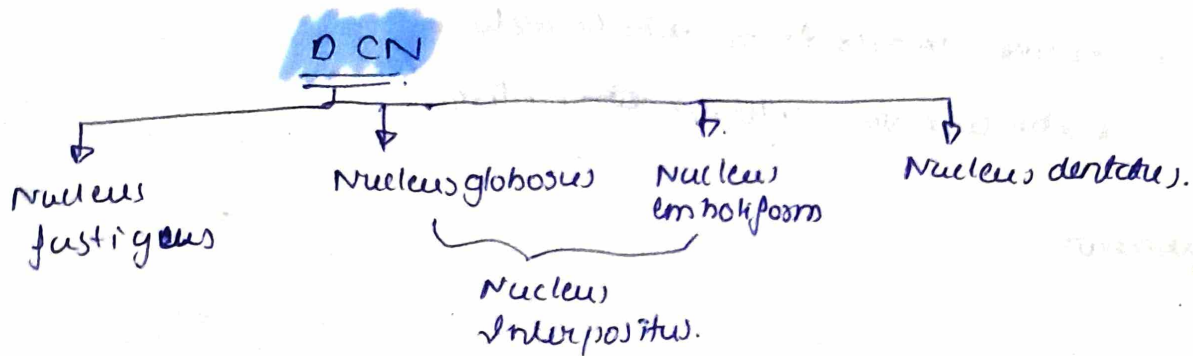 D CN
Nucleus
fastigeus
Nucleus globosus
Nucleus
emboliform
Nucleus dentatus.
Nucleus
Interpositus.